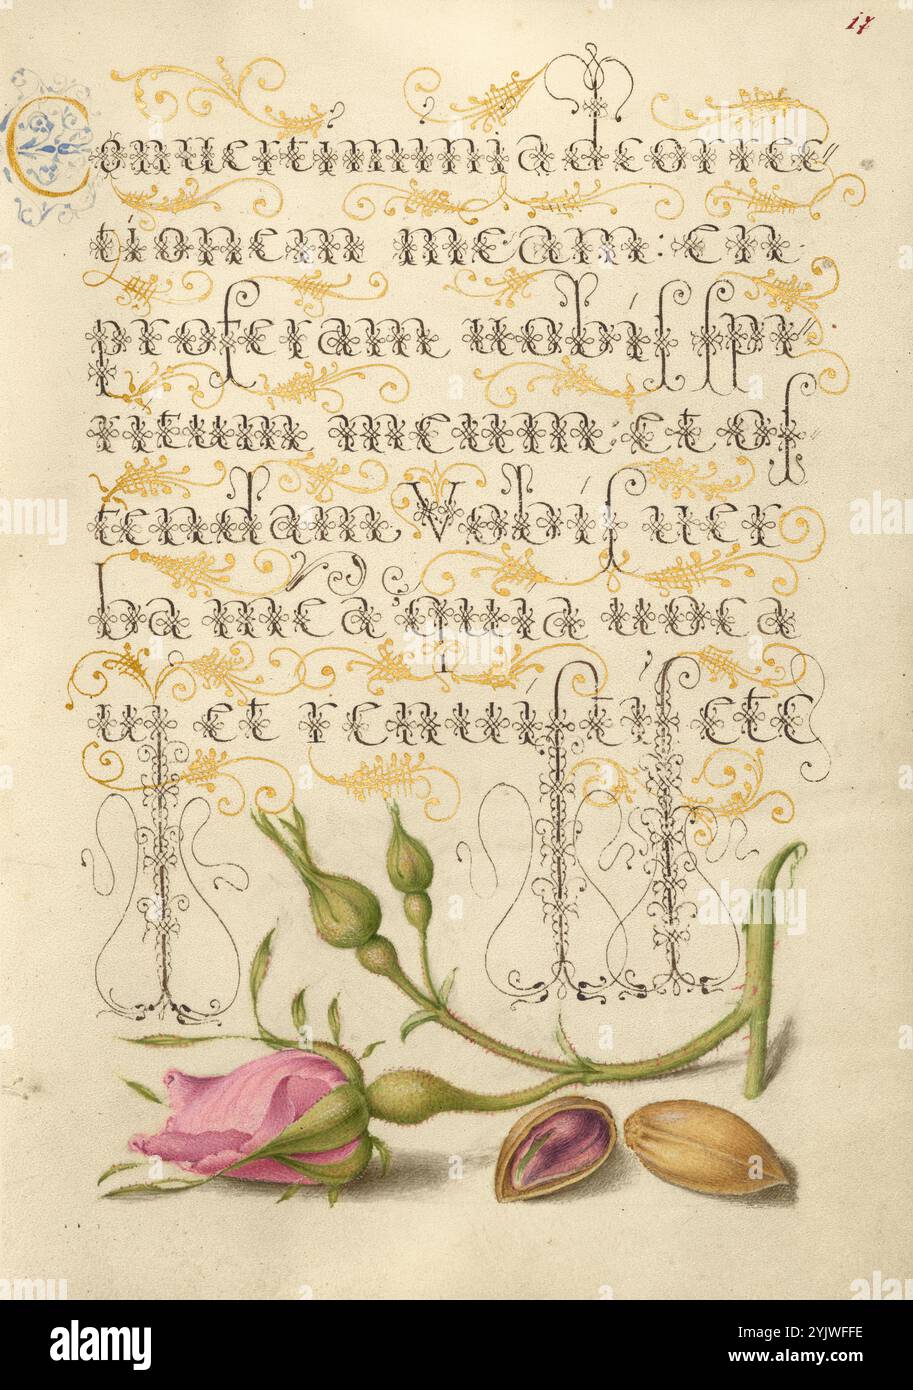 17
Conuertimini ad correc
tionem meam: en
proferam uobis spi
ritum meum: et os
tendam Vobis uer
ba mea quia uoca
ui et renuistis etc
alamy
Image ID: 2YJWFFE
www.alamy.com